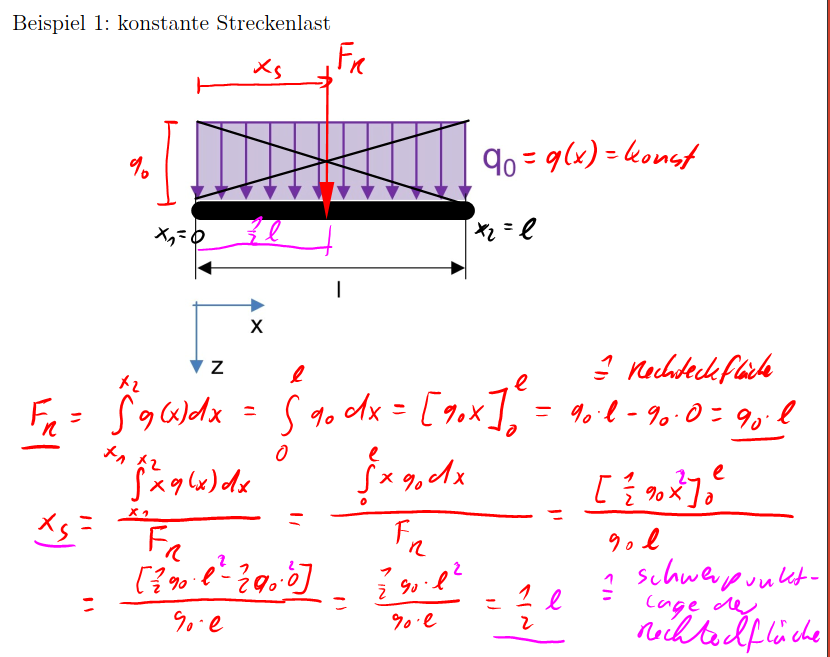 Beispiel 1: konstante Streckenlast
x_S F_R
q_0 q_0 = q(x) = konst
x_1=0 1/2 l x_2 = l
l
x
z
≙ Rechteckfläche
F_R = ∫_{x_1}^{x_2} q(x)dx = ∫_0^l q_0 dx = [q_0 x]_0^l = q_0·l - q_0·0 = q_0·l
x_S = ∫_{x_1}^{x_2} x q(x)dx / F_R = ∫_0^l x q_0 dx / F_R = [1/2 q_0 x^2]_0^l / q_0 l
= [1/2 q_0·l^2 - 1/2 q_0·0^2] / q_0·l = 1/2 q_0·l^2 / q_0·l = 1/2 l ≙ Schwerpunkt-
lage der
Rechteckfläche